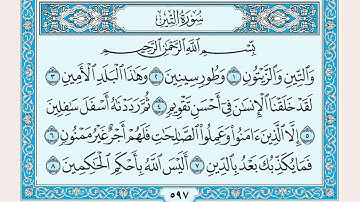 سُورَةُ التِّينِ
بِسْمِ اللَّهِ الرَّحْمَٰنِ الرَّحِيمِ
وَالتِّينِ وَالزَّيْتُونِ ١ وَطُورِ سِينِينَ ٢ وَهَٰذَا الْبَلَدِ الْأَمِينِ ٣
لَقَدْ خَلَقْنَا الْإِنسَٰنَ فِي أَحْسَنِ تَقْوِيمٍ ٤ ثُمَّ رَدَدْنَٰهُ أَسْفَلَ سَٰفِلِينَ
٥ إِلَّا الَّذِينَ ءَامَنُوا وَعَمِلُوا الصَّٰلِحَٰتِ فَلَهُمْ أَجْرٌ غَيْرُ مَمْنُونٍ ٦
فَمَا يُكَذِّبُكَ بَعْدُ بِالدِّينِ ٧ أَلَيْسَ اللَّهُ بِأَحْكَمِ الْحَٰكِمِينَ ٨
٥٩٧